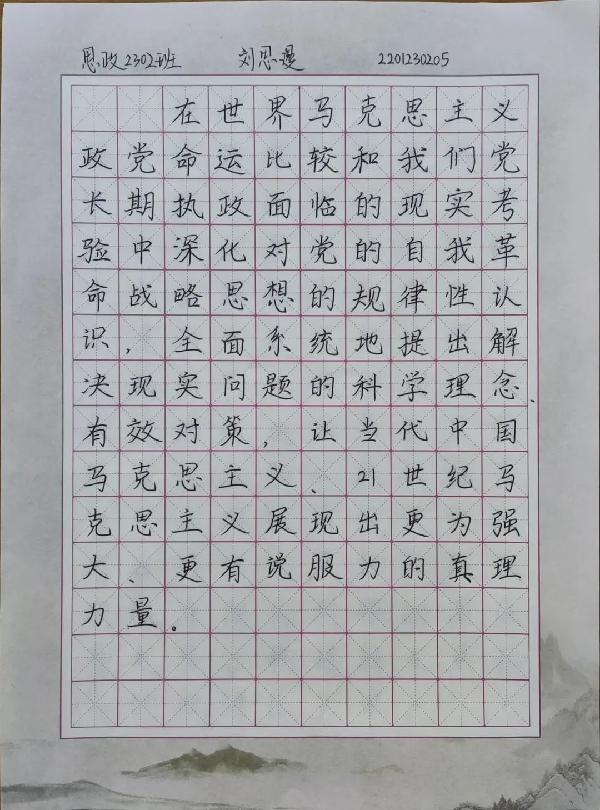 思政2302班 刘思漫 2201230205
在世界马克思主义
政党命运比较和我们党
长期执政面临的现实考
验中深化对党的自我革
命战略思想的规律性认
识，全面系统地提出解
决现实问题的科学理念、
有效对策，让当代中国
马克思主义、21世纪马
克思主义展现出更为强
大、更有说服力的真理
力量。